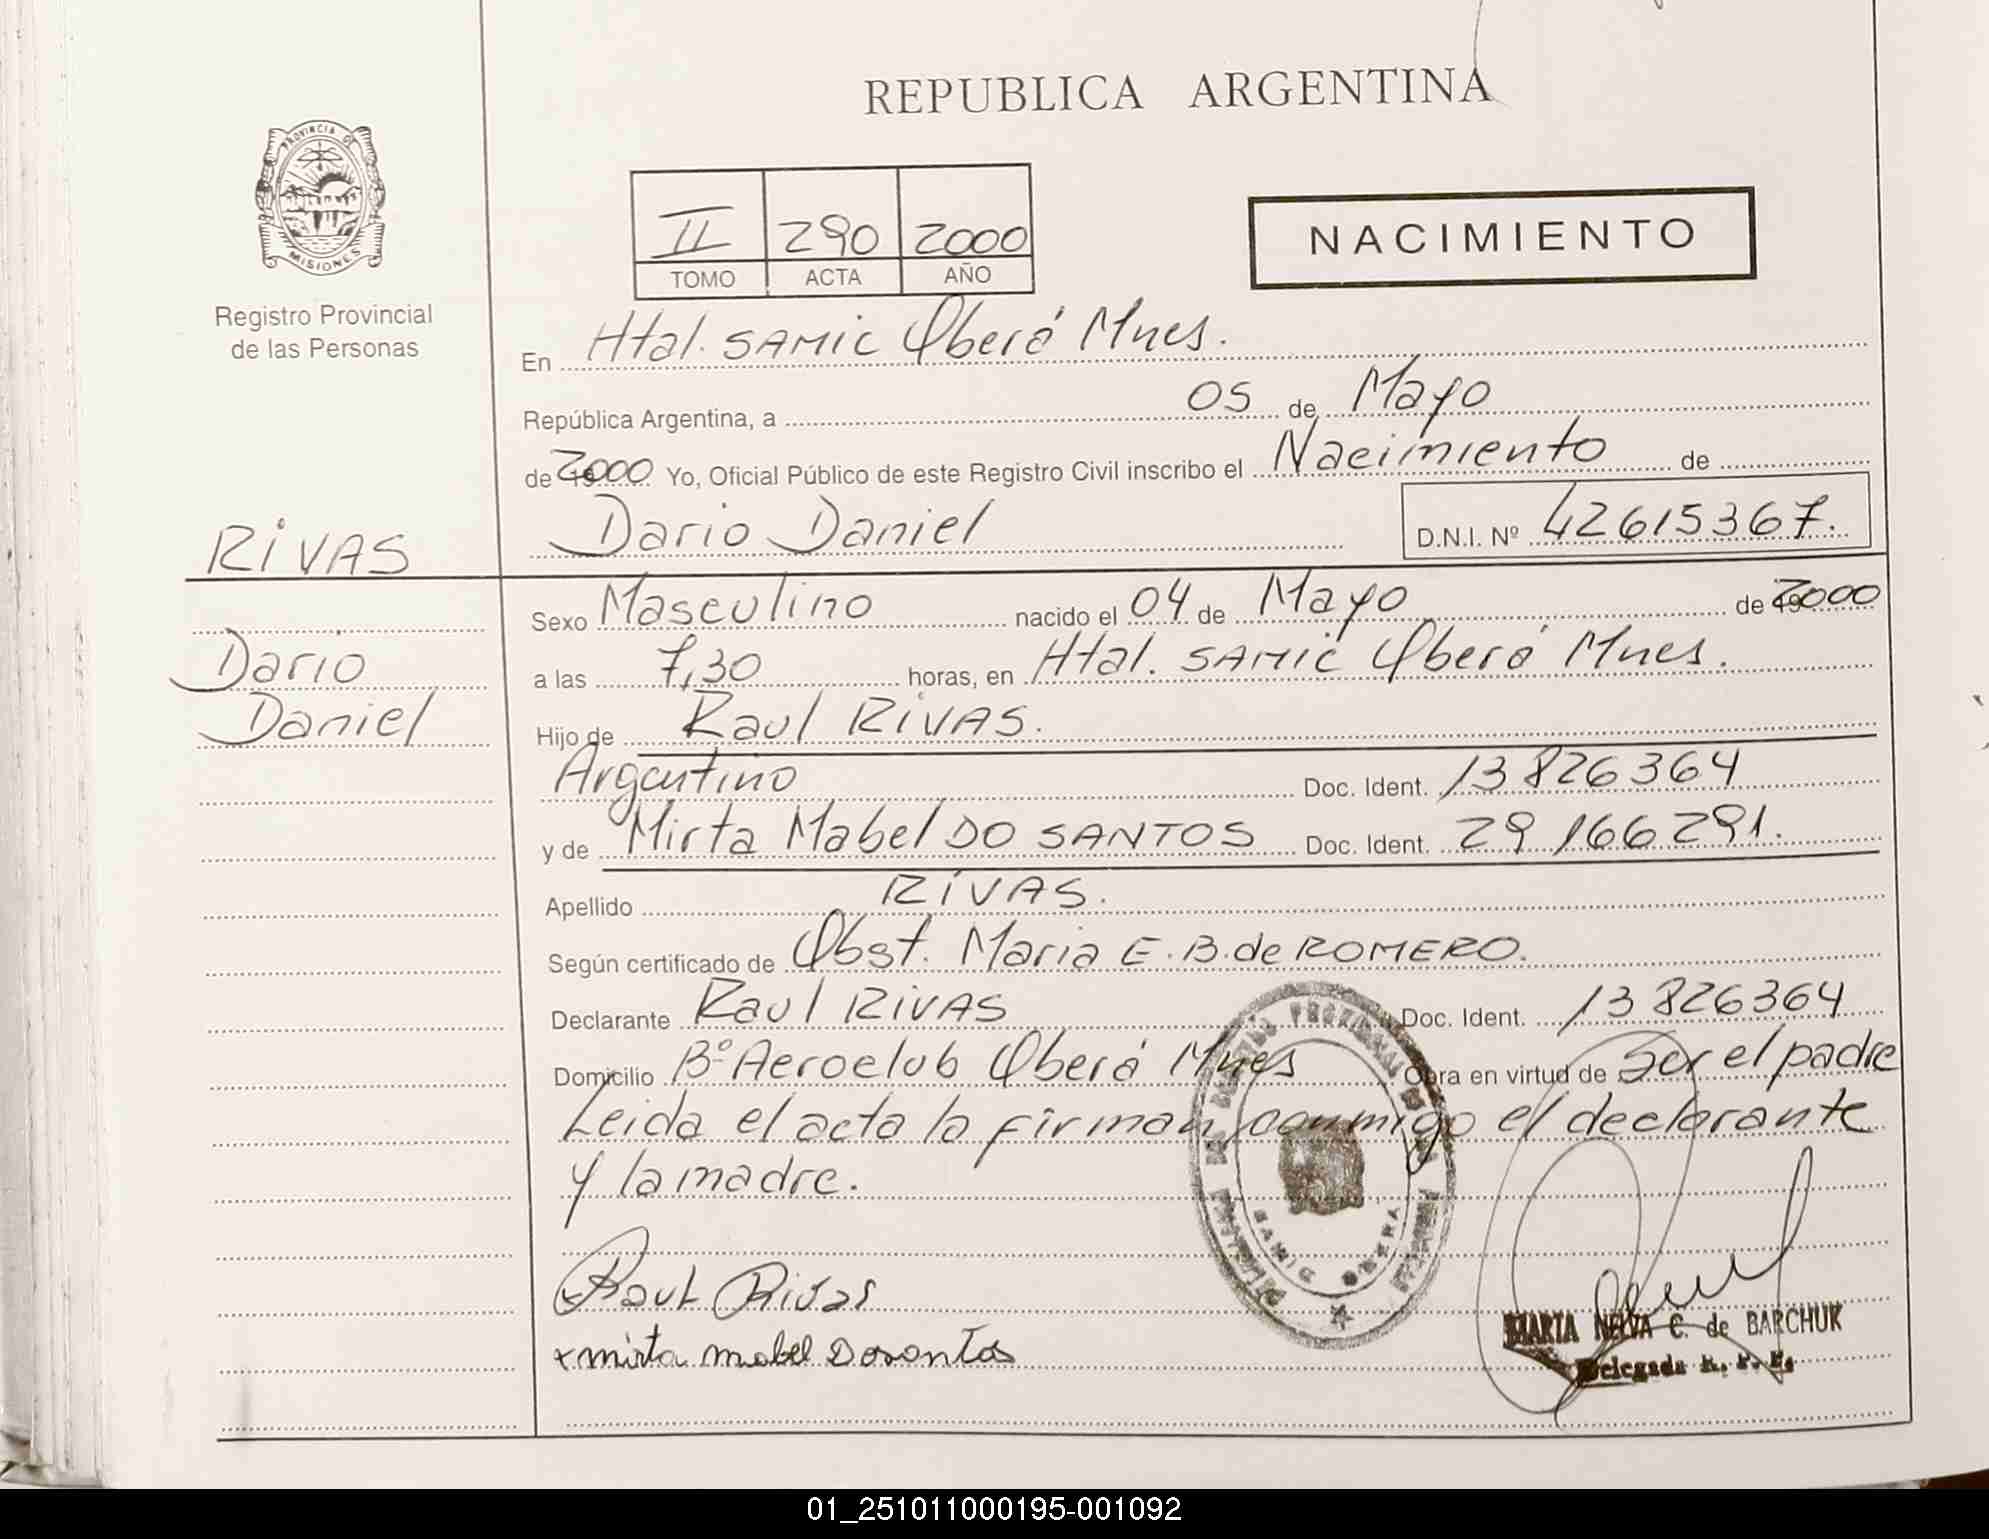 REPUBLICA ARGENTINA
PROVINCIA DE
MISIONES
Registro Provincial
de las Personas
II 290 2000
TOMO ACTA AÑO
NACIMIENTO
En Htal. SAMIC Oberá Mnes.
República Argentina, a 05 de Mayo
de 2000 Yo, Oficial Público de este Registro Civil inscribo el Nacimiento de
Dario Daniel D.N.I. Nº 42615367.
RIVAS
Dario
Daniel
Sexo Masculino nacido el 04 de Mayo de 2000
a las 7,30 horas, en Htal. SAMIC Oberá Mnes.
Hijo de Raul RIVAS.
Argentino Doc. Ident. 13826364
y de Mirta Mabel DO SANTOS Doc. Ident. 29166291.
Apellido RIVAS.
Según certificado de Obst. Maria E. B. de ROMERO.
Declarante Raul RIVAS Doc. Ident. 13826364
Domicilio Bº Aeroclub Oberá Mnes Obra en virtud de ser el padre
Leida el acta la firman conmigo el declarante
y la madre.
Raul Rivas
x mirta mabel Dosantos
SAMIC OBERA
MARTA NELVA C. de BARCHUK
Delegada R. P. P.
01_251011000195-001092